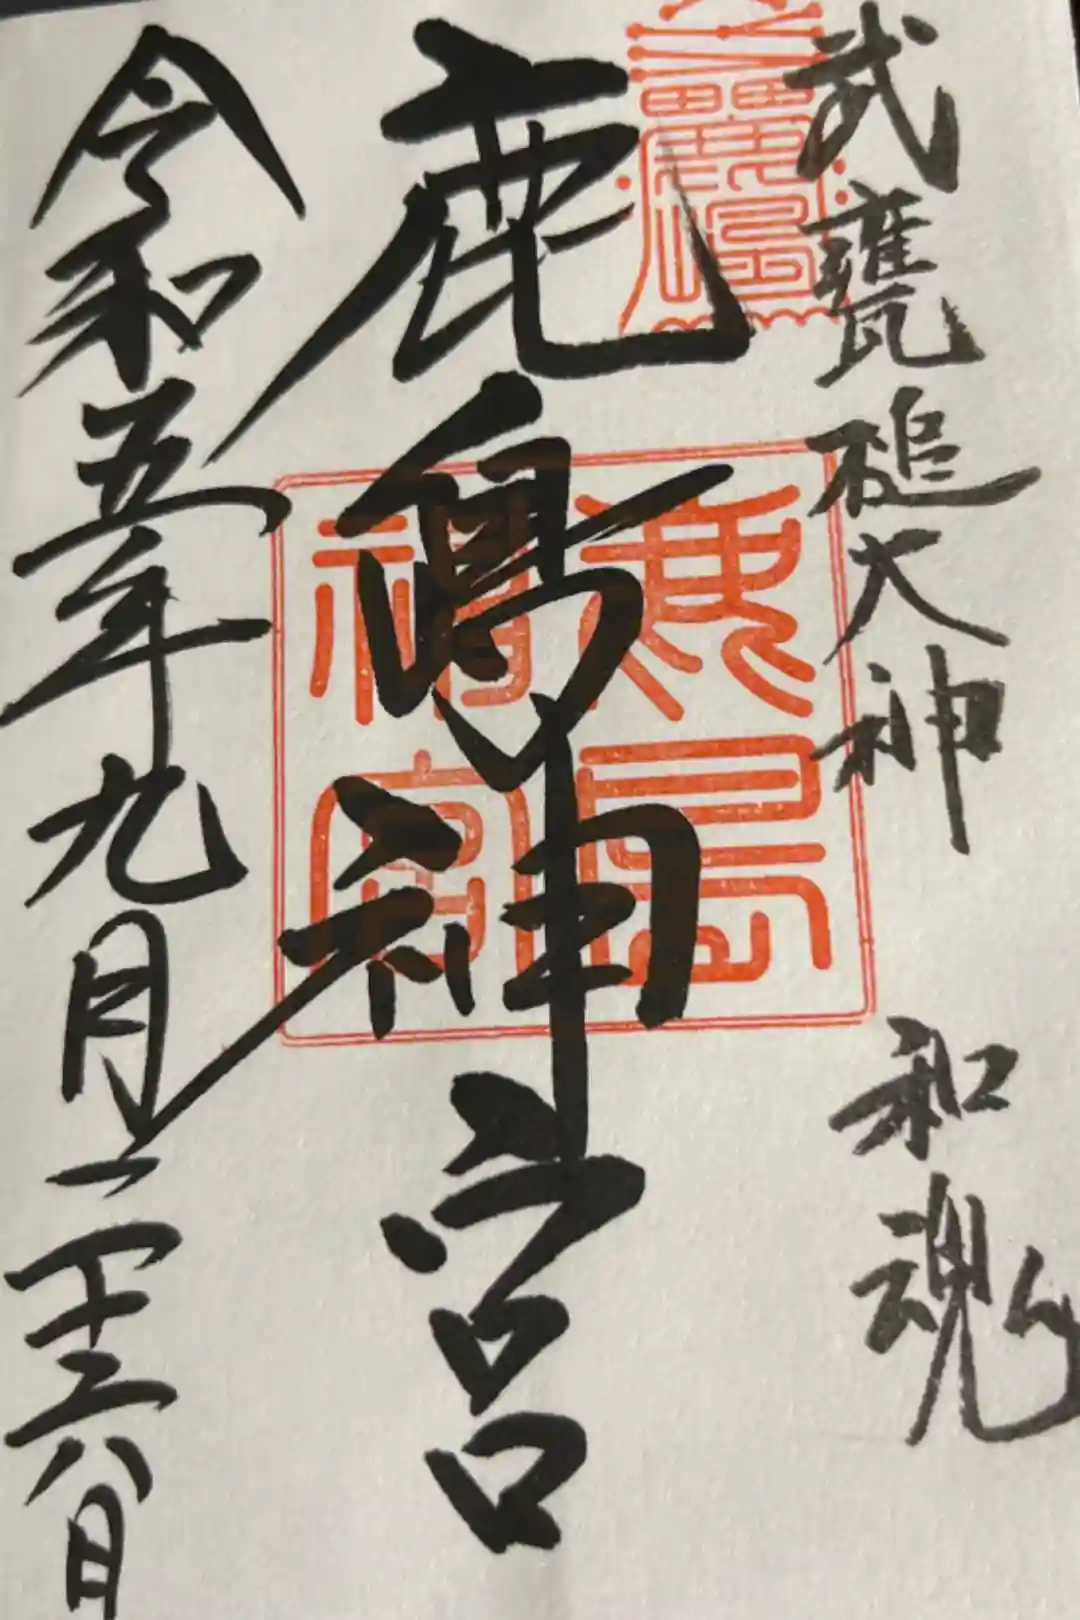 武甕槌大神 和魂
鹿島神宮
鹿島神宮
令和五年九月二十六日